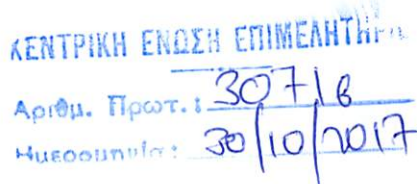 ΚΕΝΤΡΙΚΗ ΕΝΩΣΗ ΕΠΙΜΕΛΗΤΗ
Αριθμ. Πρωτ.: 307/6
Ημερομηνία: 30/10/2017